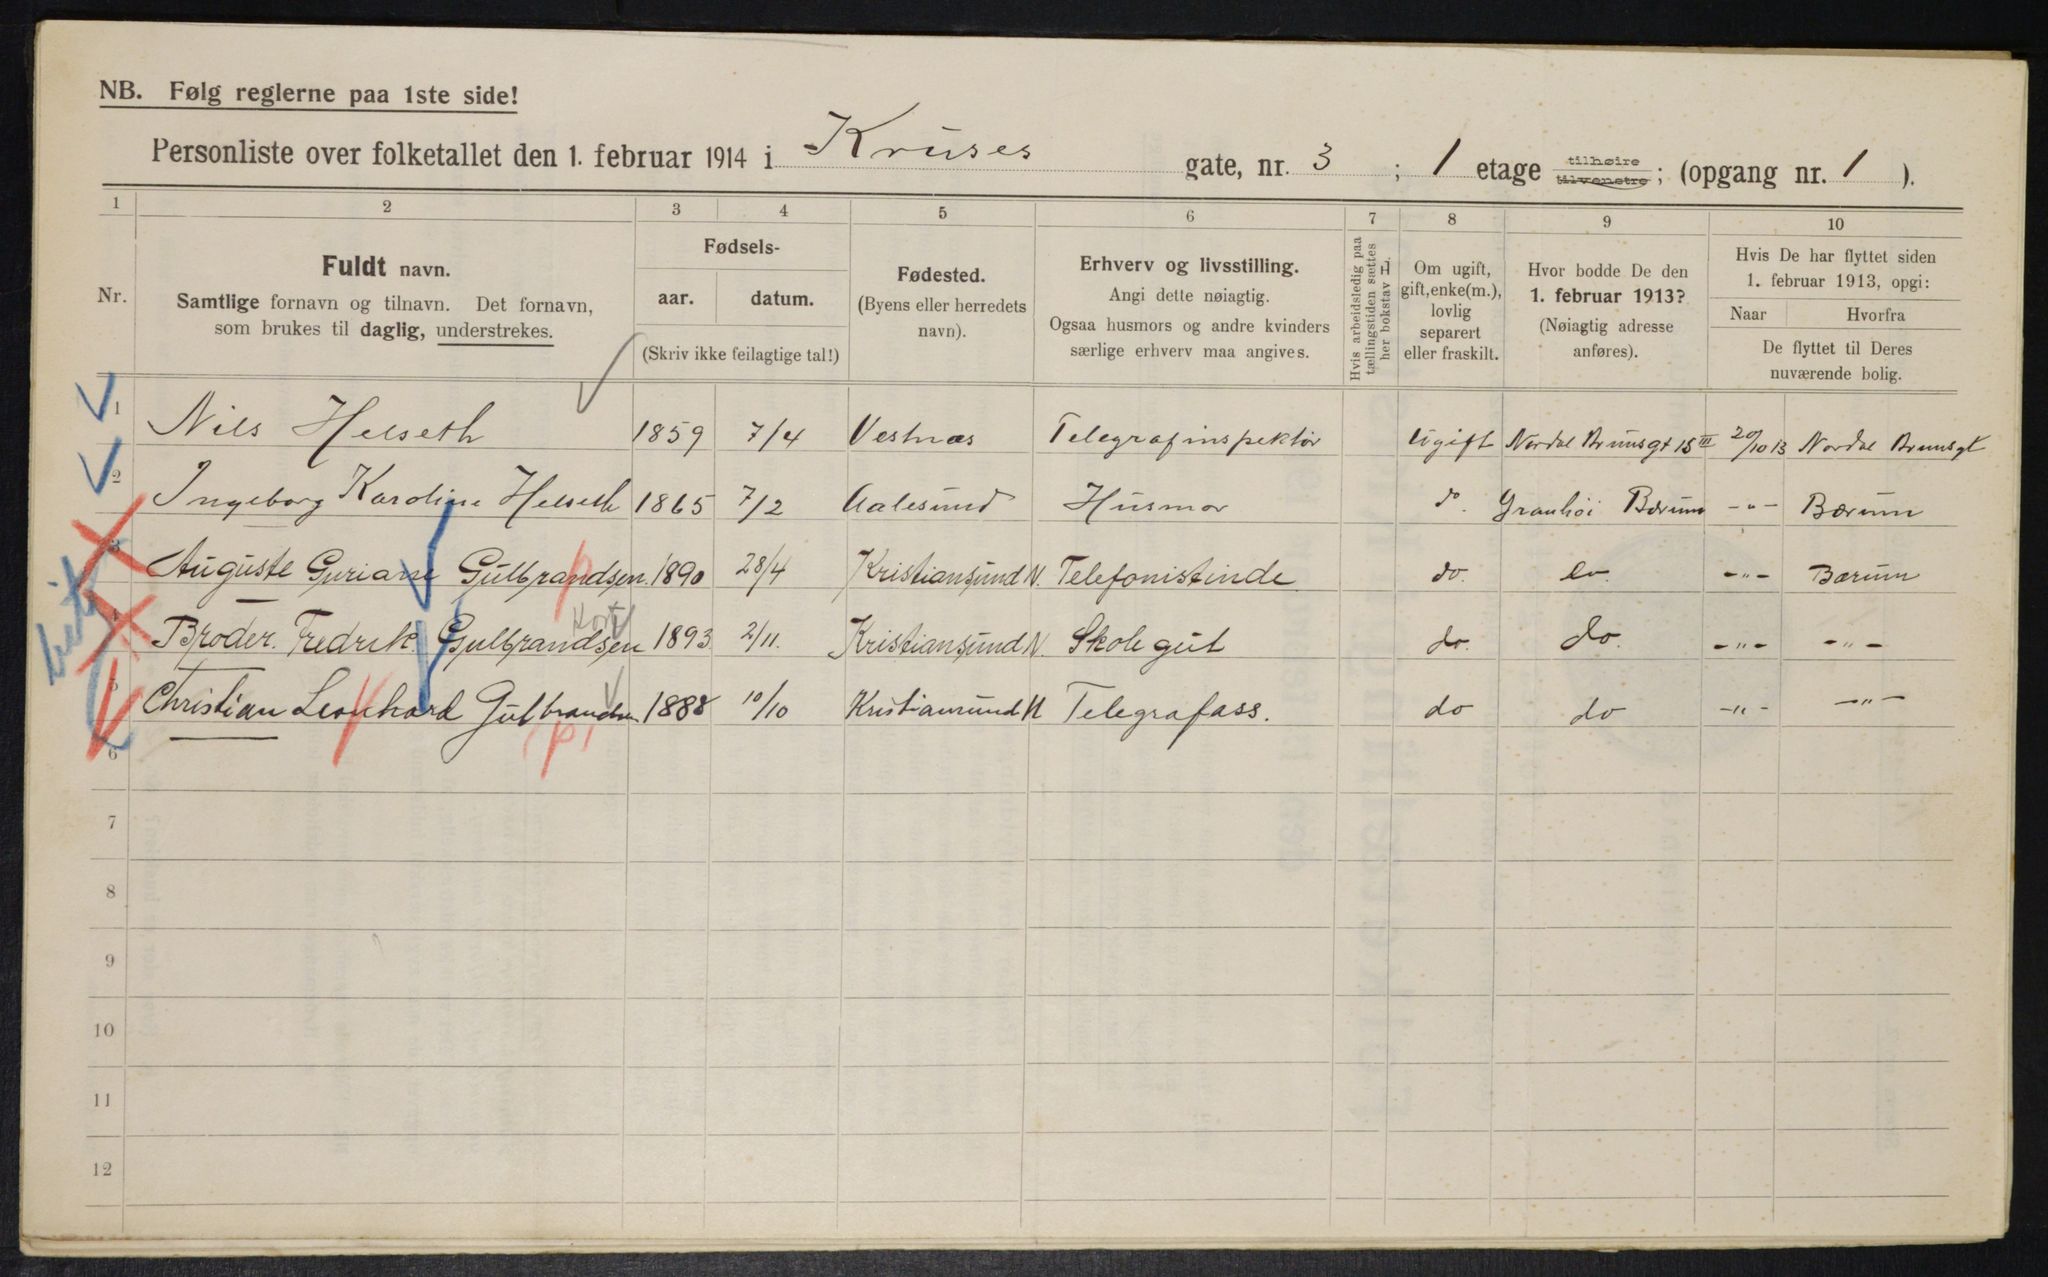 NB. Følg reglerne paa 1ste side!
Personliste over folketallet den 1. februar 1914 i Kruses gate, nr. 3 ; 1 etage tilhøire tilvenstre; (opgang nr. 1 ).
1 2 3 4 5 6 7 8 9 10
Nr.
Fuldt navn.
Samtlige fornavn og tilnavn. Det fornavn,
som brukes til daglig, understrekes.
Fødsels-
aar. datum.
(Skriv ikke feilagtige tal!)
Fødested.
(Byens eller herredets
navn).
Erhverv og livsstilling.
Angi dette nøiagtig.
Ogsaa husmors og andre kvinders
særlige erhverv maa angives.
Hvis arbeidsledig paa
tællingstiden sættes
her bokstav L.
Om ugift,
gift, enke(m.),
lovlig
separert
eller fraskilt.
Hvor bodde De den
1. februar 1913?
(Nøiagtig adresse
anføres).
Hvis De har flyttet siden
1. februar 1913, opgi:
Naar Hvorfra
De flyttet til Deres
nuværende bolig.
1 Nils Helseth 1859 7/4 Vestnæs Telegrafinspektør Ugift Nordal Brunsgt 15 III 20/10 13 Nordal Brunsgt
2 Ingeborg Karoline Helseth 1865 7/2 Aalesund Husmor do. Granhøi Bærum -"- Bærum
3 Auguste Guriane Gulbrandsen. 1890 28/4 Kristiansund N. Telefonistinde do. do. -"- Bærum
Kort
4 Broder. Fredrik Gulbrandsen 1893. 2/11. Kristiansund N. Skolegut do. do. -"- -"-
5 Christian Leonhard Gulbrandsen 1888 10/10 Kristiansund N Telegrafass. do do -"- -"-
6
7
8
9
10
11
12